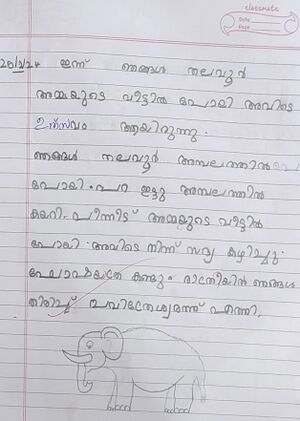 classmate
Date
Page
ഇന്ന് ഞങ്ങൾ തലവൂർ
അമ്മയുടെ വീട്ടിൽ പോയി അവിടെ
ഉത്സവം ആയിരുന്നു.
ഞങ്ങൾ തലവൂർ അമ്പലത്തിൽ
പോയി. പറ ഇട്ടു അമ്പലത്തിൽ
കയറി. പിന്നീട് അമ്മയുടെ വീട്ടിൽ
പോയി. അവിടെ നിന്ന് സദ്യ കഴിച്ചു.
കണ്ടു. രാത്രിയിൽ ഞങ്ങൾ
തിരിച്ച് എത്തി.